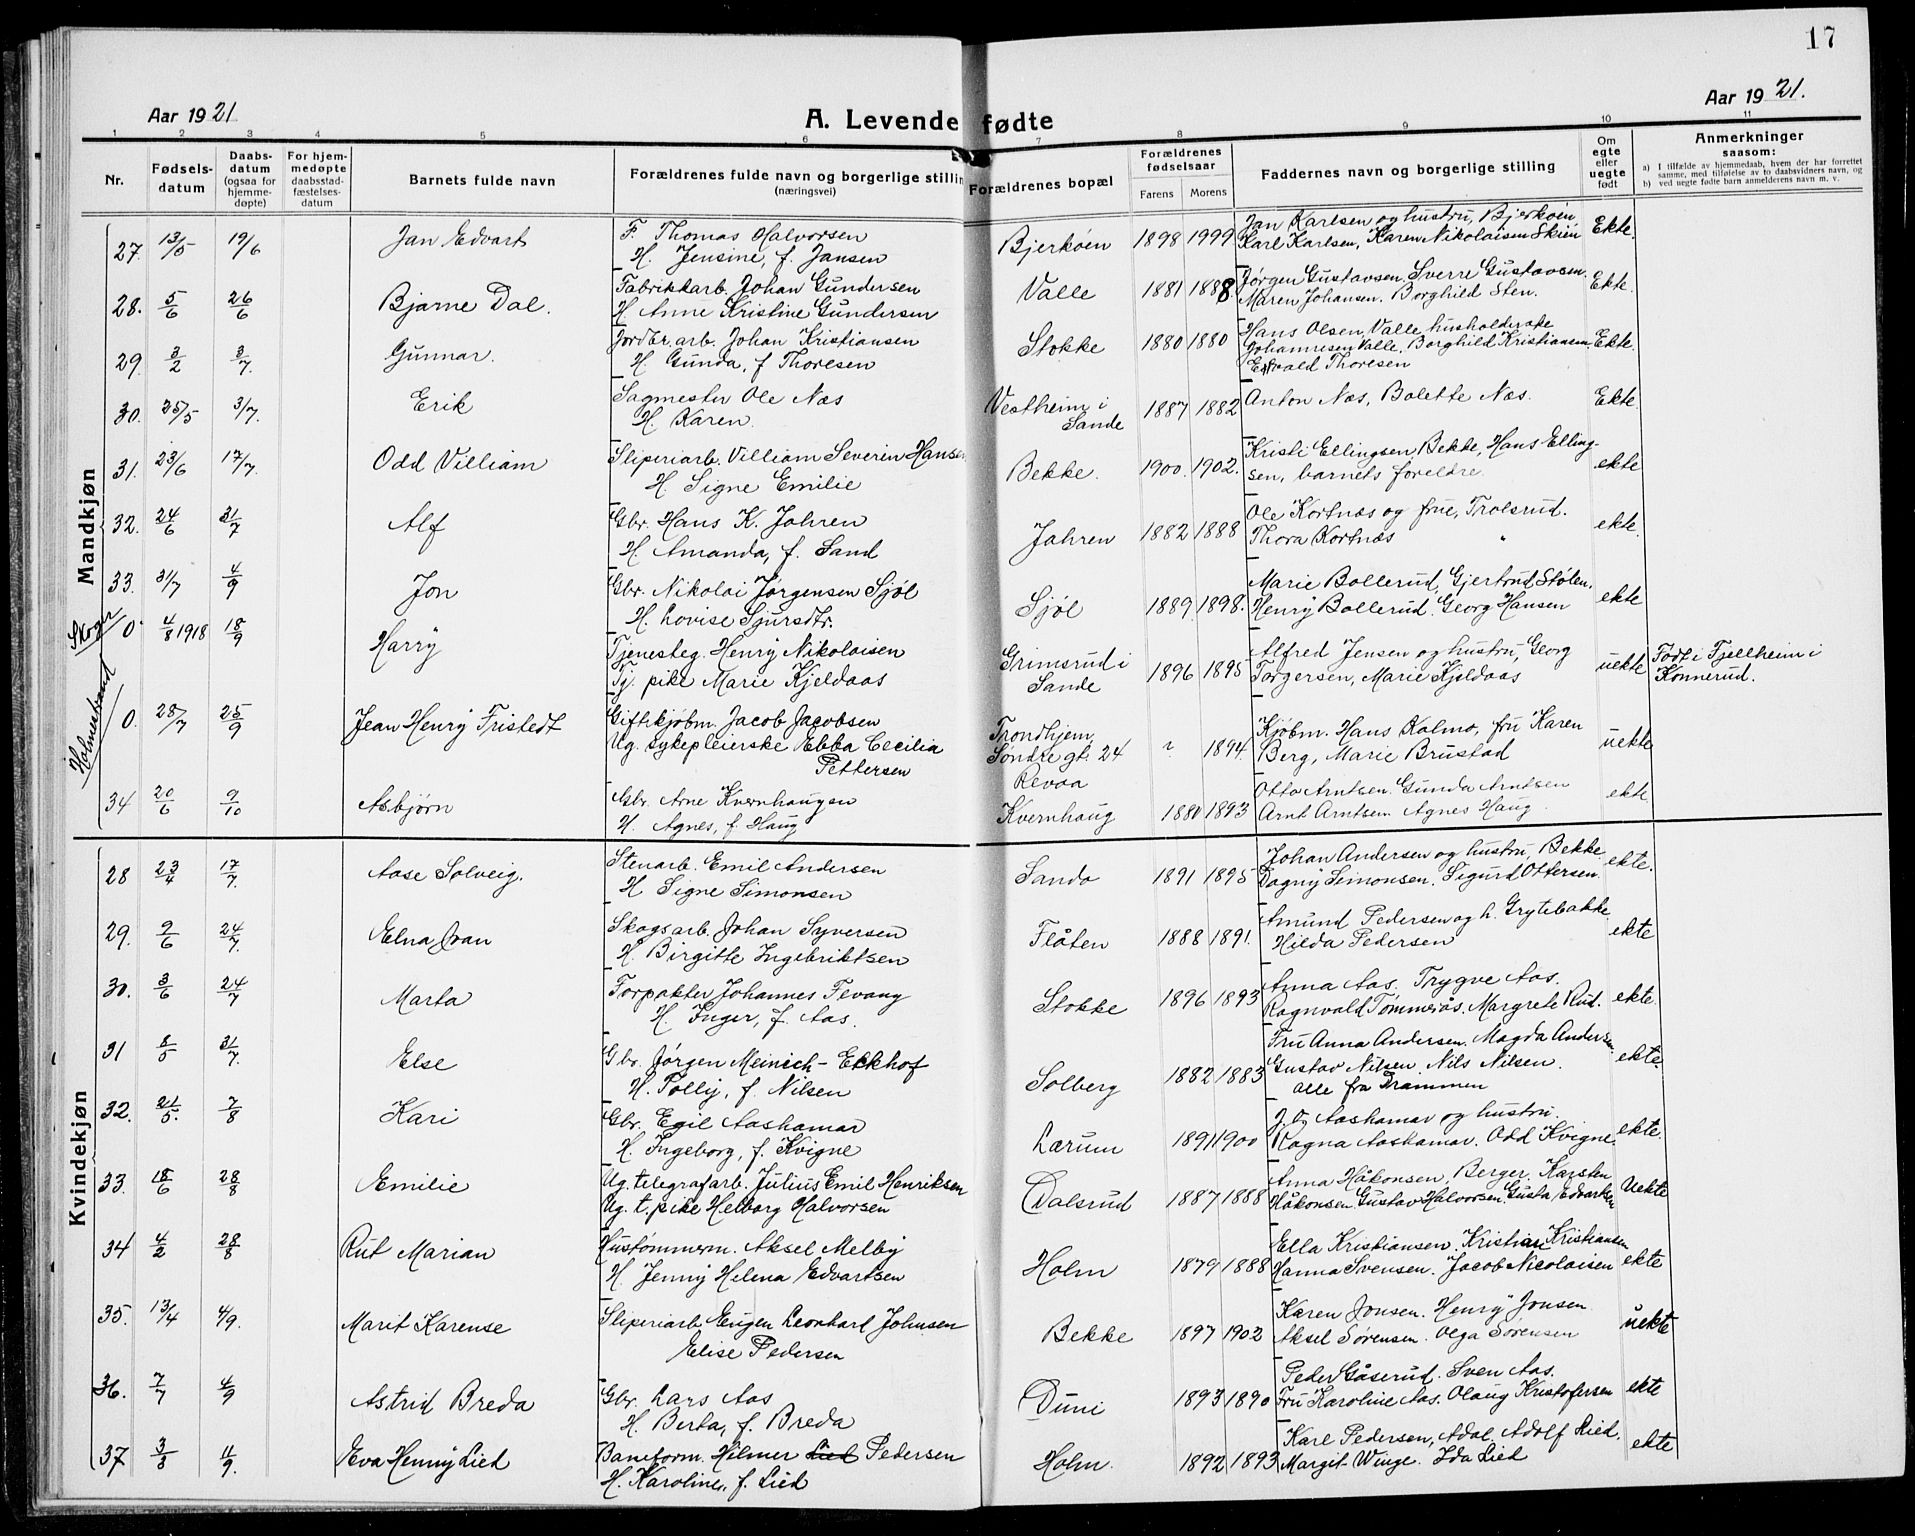 17
Aar 1921
A. Levende fødte
Aar 1921.
1 2 3 4 5 6 7 8 9 10 11
Nr. | Fødselsdatum | Daabsdatum (ogsaa for hjemmedøpte) | For hjemmedøpte daabsstadfæstelsesdatum | Barnets fulde navn | Forældrenes fulde navn og borgerlige stilling (næringsvei) | Forældrenes bopæl | Forældrenes fødselsaar Farens Morens | Faddernes navn og borgerlige stilling | Om egte eller uegte født | Anmerkninger saasom: a) I tilfælde av hjemmedaab, hvem der har forrettet samme, med tilføielse av to daabsvidners navn, og b) ved uegte fødte barn anmelderens navn m. v.
Mandkjøn
27. 13/5 19/6 Jan Edvart F. Thomas Halvorsen Bjerkøen 1898 1999 Jan Karlsen og hustru, Bjerkøen Ekte.
H. Jensine, f. Jansen Karl Karlsen, Karen Nikolaisen Skien
28. 5/6 26/6 Bjarne Dal. Fabrikkarb. Johan Gundersen Valle 1881 1888 Jørgen Gustavsen, Sverre Gustavsen. Ekte.
H. Anne Kristine Gundersen Maren Johansen. Borghild Sten.
29. 3/2 3/7. Gunnar. Jordbr. arb. Johan Kristiansen Stokke 1880 1880 Hans Olsen, Valle, husholderske Ekte.
H. Gunda, f Thoresen Johannesen Valle, Borghild Kristiansen.
Edvald Thoresen
30. 25/5 3/7. Erik Sagmester Ole Næs Vestheim i Sande 1887 1882 Anton Næs, Bolette Næs. Ekte.
H. Karen.
31. 23/6 17/7. Odd Villiam Sliperiarb. Villiam Severin Hansen Bekke. 1900. 1902. Kristi Ellingsen, Bekke, Hans Elling- ekte
H. Signe Emilie sen, barnets foreldre.
32. 24/6 31/7 Alf Gbr. Hans K. Jahren Jahren 1882 1888 Ole Kortnæs og frue, Trolsrud. ekte.
H. Amanda, f. Sand Thora Kortnæs "
33. 31/7 4/9 Jon Gbr. Nikolai Jørgensen Sjøl Sjøl 1889 1898. Marie Bollerud, Gjertrud Stølen. ekte
H. Lovise Sjursdtr. Henry Bollerud, Georg Hansen
Skoger 0 4/8 1918 18/9 Harry Tjenesteg. Henry Nikolaisen Grimsrud i Sande 1896 1895 Alfred Jensen og hustru, Georg uekte Født i Fjellheim i Konnerud.
Tj. pike Marie Kjeldaas Torgersen, Marie Kjeldaas
Holmestrand 0. 28/7 25/9 Jean Henry Fristedt Gift kjøbm. Jacob Jacobsen Trondhjem, Søndre gt. 24 ? 1894. Kjøbm. Hans Kalmo, fru Karen uekte
Ug. sykepleierske Ebba Cecilia Pettersen Revaa Berg, Marie Brustad
34 20/6 9/10 Asbjørn Gbr. Arne Kvernhaugen Kvernhaug 1880 1893 Otto Arntsen. Gunda Arntsen ekte
H. Agnes, f. Haug Arnt Arntsen Agnes Haug.
Kvindekjøn
28 23/4 17/7. Aase Solveig. Stenarb. Emil Andersen Sando 1891 1895 Johan Andersen og hustru, Bekke. ekte.
H Signe Simonsen Dagny Simonsen. Sigurd Ottersen
29. 9/6 24/7. Elna Joan Skogsarb. Johan Syversen Flåten 1888 1891. Amund Pedersen og h. Grytebakke. ekte
H. Birgitte Ingebriktsen Hilda Pedersen
30. 3/6 24/7 Marta Forpakter Johannes Tevang Stokke 1896 1893 Anna Aas. Trygve Aas. ekte.
H. Inger, f. Aas. Ragnvald Tømmerås. Margrete Rud.
31 8/5 31/7. Else Gbr. Jørgen Meinich-Eckhof Solberg 1882 1883 Fru Anna Andersen. Magda Andersen ekte.
H. Polly, f. Nilsen Gustav Nilsen. Nils Nilsen.
alle fra Drammen
32. 21/5. 7/8 Kari Gbr. Egil Aashamar Lærum 1891 1900 J. O. Aashamar og hustru. ekte.
H. Ingeborg, f. Kvigne Ragna Aashamar. Odd Kvigne.
33. 18/6 28/8 Emilie Ug. telegrafarb. Julius Emil Henriksen Dalsrud 1887 1888 Anna Håkonsen, Berger, Karsten Uekte
Ug. t. pike Helborg Halvorsen Håkonsen. Gustav Halvorsen. Gusta Edvartsen
34 4/2 28/8 Rut Marian Hustømmerm. Aksel Melby Holm 1879 1888 Ella Kristiansen. Kristian Kristiansen ekte
H. Jenny Helena Edvartsen Hanna Svensen. Jacob Nicolaisen
35. 13/4 4/9. Marit Karense Sliperiarb. Eugen Leonhart Johnsen Bekke 1897 1902 Karen Jonsen. Henry Jonsen uekte
Elise Pedersen Aksel Sørensen. Olga Sørensen
36. 7/7 4/9 Astrid Breda Gbr. Lars Aas Duni 1893 1890 Peder Gåserud. Sven Aas. ekte
H. Berta, f. Breda Fru Karoline Aas. Olaug Kristofersen
37 3/8 11/9. Eva Henny Lied Baneform. Hilmer Lied Pedersen Holm. 1892 1893 Karl Pedersen, Adal, Adolf Lied. ekte
H. Karoline, f. Lied Margit Winge. Ida Lied